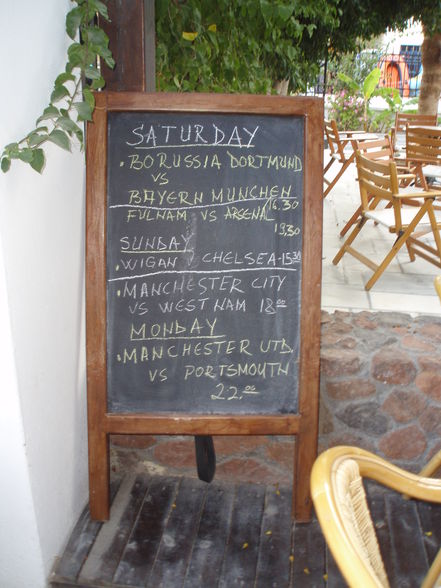 SATURDAY
• BORUSSIA DORTMUND
VS
BAYERN MUNCHEN
16.30
FULHAM VS ARSENAL
19,30
SUNDAY
• WIGAN V CHELSEA - 15 30
• MANCHESTER CITY
VS WEST HAM 18 00
MONDAY
• MANCHESTER UTD,
VS PORTSMOUTH
22.00